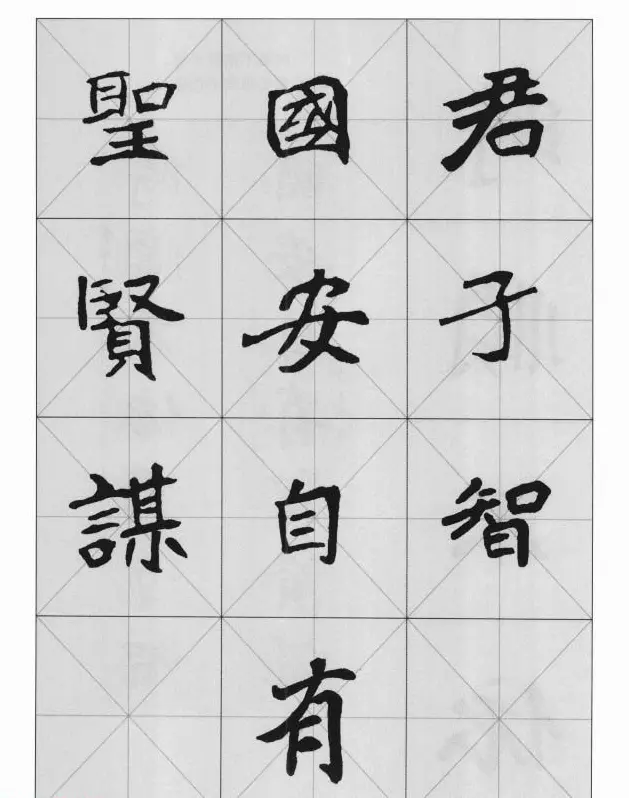 君子智
國安自有
聖賢謀